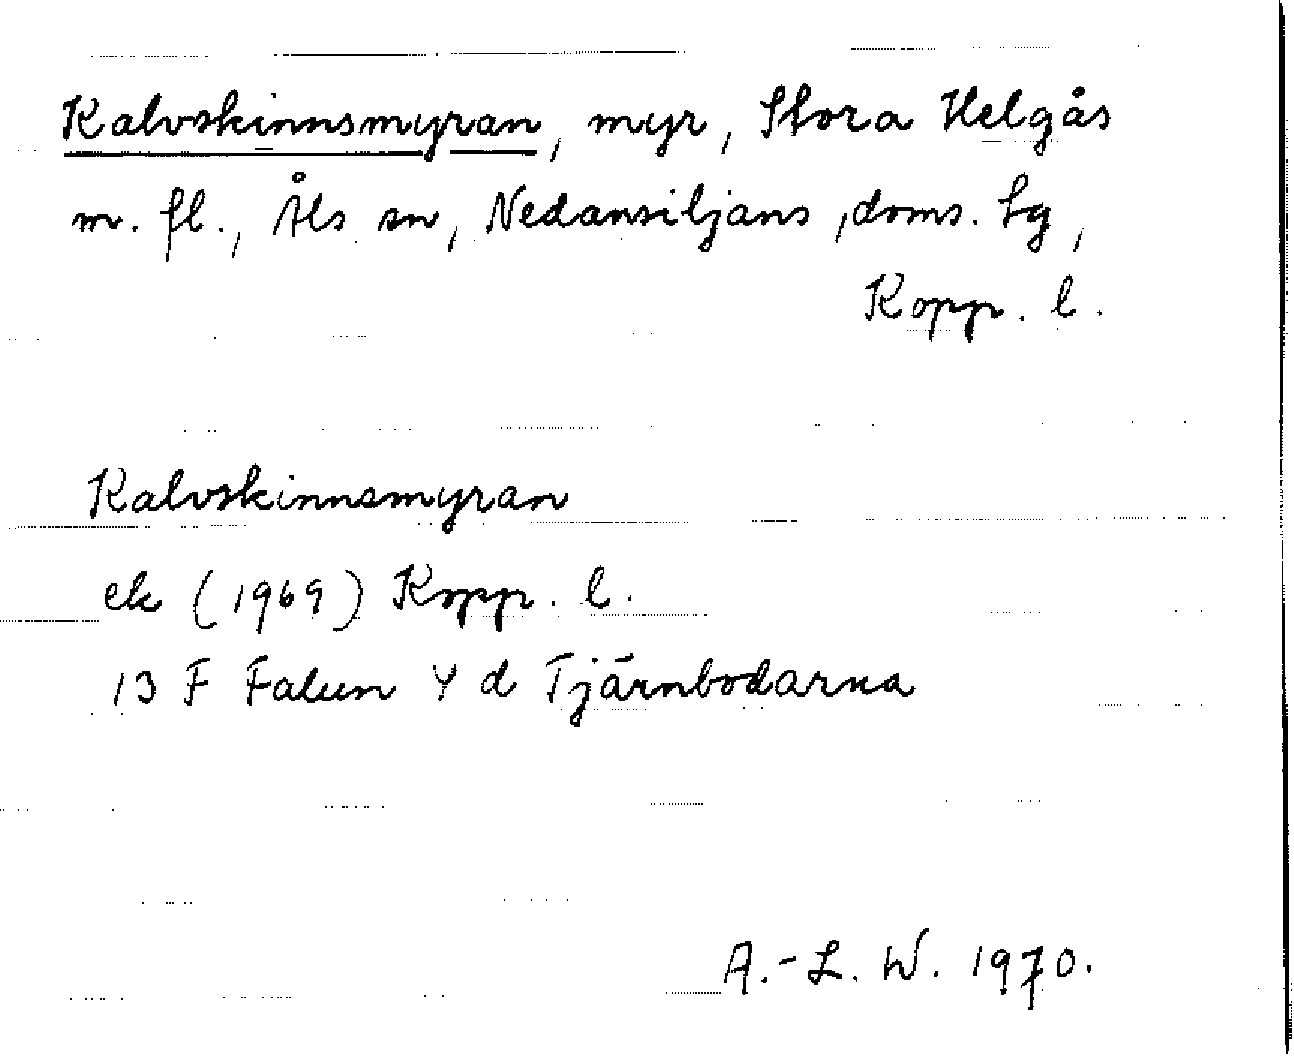 Kalvskinnsmyran, myr, Stora Helgås
m. fl., Åls sn, Nedansiljans doms. lg,
Kopp. l.
Kalvskinnsmyran
ek (1969) Kopp. l.
13 F Falun Y d Tjärnbodarna
A.-L. W. 1970.